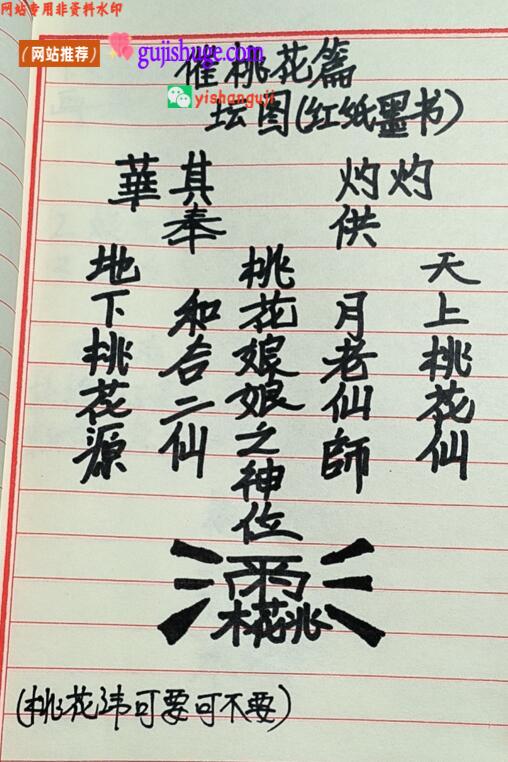 网站专用非资料水印
（网站推荐）
gujishuge.com
yishanguji
催桃花篇
坛图(红纸墨书)
灼灼 其華
供奉
天上桃花仙
月老仙師
桃花娘娘之神位
和合二仙
地下桃花源
(桃花讳可要可不要)